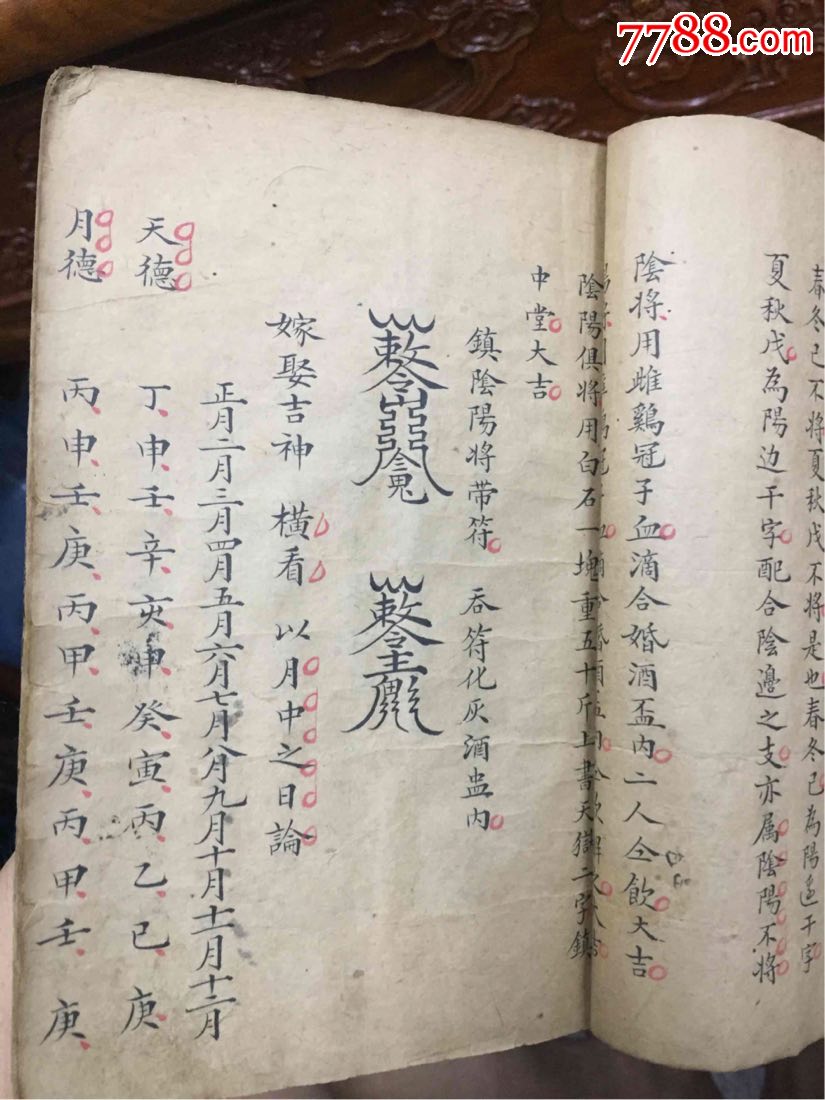 7788.com
春冬己不將夏秋戊不將是也春冬己為陽邊干字
夏秋戊為陽边干字配合陰邊之支亦属陰陽不將
陰將用雌鷄冠子血滴合婚酒盃内二人仝飲大吉
陰陽俱將用白石一塊重五十斤上書天獄二字鎮
中堂大吉
鎮陰陽將带符 吞符化灰酒盅内
嫁娶吉神 橫看 以月中之日論
正月二月三月四月五月六月七月八月九月十月十一月十二月
天德 丁申壬辛亥申癸寅丙乙巳庚
月德 丙申壬庚丙甲壬庚丙甲壬庚